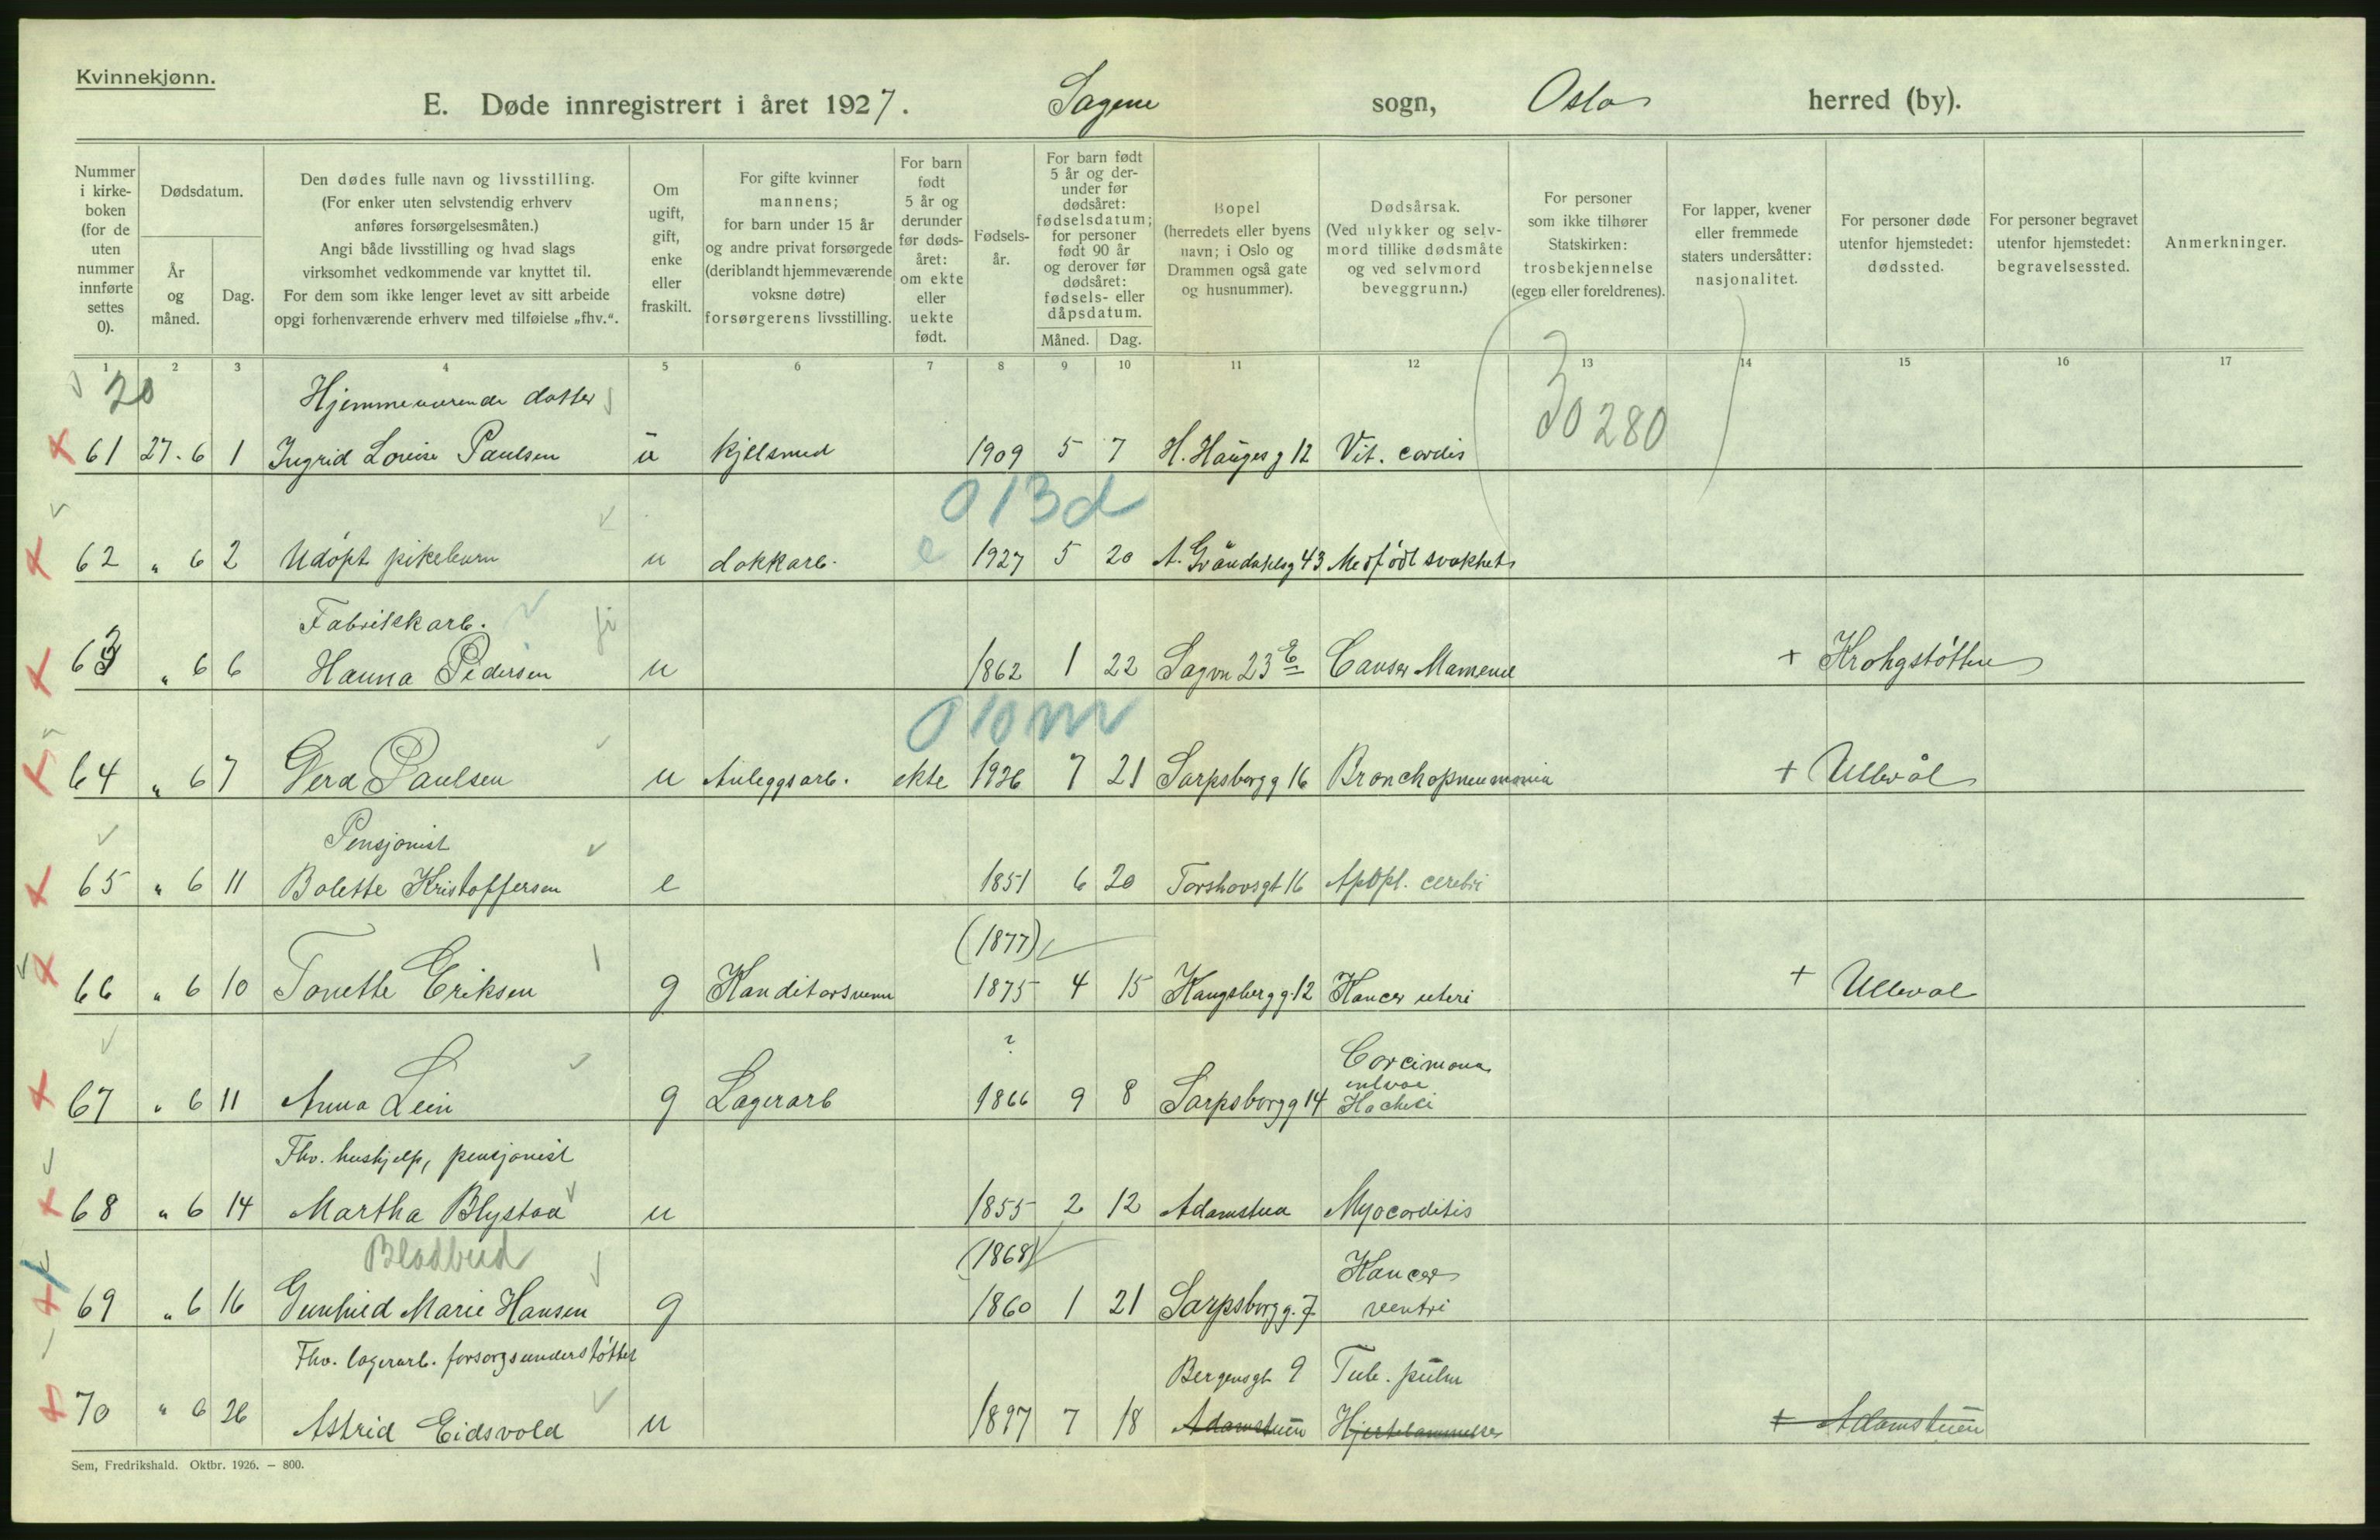 Kvinnekjønn.
E. Døde innregistrert i året 1927. Sagene sogn, Oslo herred (by).
Nummer i kirke-boken (for de uten nummer innførte settes 0).
Dødsdatum.
År og måned.
Dag.
Den dødes fulle navn og livsstilling.
(For enker uten selvstendig erhverv anføres forsørgelsesmåten.)
Angi både livsstilling og hvad slags virksomhet vedkommende var knyttet til.
For dem som ikke lenger levet av sitt arbeide opgi forhenværende erhverv med tilføielse „fhv.“.
Om ugift, gift, enke eller fraskilt.
For gifte kvinner mannens; for barn under 15 år og andre privat forsørgede (deriblandt hjemmeværende voksne døtre) forsørgerens livsstilling.
For barn født 5 år og derunder før døds-året: om ekte eller uekte født.
Fødsels-år.
For barn født 5 år og der-under før dødsåret: fødselsdatum; for personer født 90 år og derover før dødsåret: fødsels- eller dåpsdatum.
Måned. Dag.
Bopel (herredets eller byens navn; i Oslo og Drammen også gate og husnummer).
Dødsårsak. (Ved ulykker og selv-mord tillike dødsmåte og ved selvmord beveggrunn.)
For personer som ikke tilhører Statskirken: trosbekjennelse (egen eller foreldrenes).
For lapper, kvener eller fremmede staters undersåtter: nasjonalitet.
For personer døde utenfor hjemstedet: dødssted.
For personer begravet utenfor hjemstedet: begravelsessted.
Anmerkninger.
1 2 3 4 5 6 7 8 9 10 11 12 13 14 15 16 17
20 Hjemmeværende datter
61 27. 6 1 Ingrid Louise Paulsen u kjelsmed 1909 5 7 H. Haugesg 12 Vit. cordis 30280
013d
62 „ 6 2 Udøpt pikebarn u dokkarb. e 1927 5 20 A. Grøndahlsg 43 Medfødt svakhet
Fabrikkarb.
63 „ 6 6 Hanna Pedersen u 1862 1 22 Sagvn 23 E Cancer Mammae + Krohgstøtten
010m
64 „ 6 7 Vera Paulsen u Anleggsarb. ekte 1926 7 21 Sarpsborgg 16 Bronchopneumonia + Ullevål
Pensjonist
65 „ 6 11 Bolette Kristoffersen e 1851 6 20 Torshovsgt 16 Apopl. cerebri
(1877)
66 „ 6 10 Tonette Eriksen g Kanditorsvenn 1875 4 15 Kongsbergg. 12 Kancer uteri + Ulleval
?
Corcimona
67 „ 6 11 Anna Lein g Lagerarb 1866 9 8 Sarpsborgg 14
Fhv. hushjelp, pensjonist
68 „ 6 14 Martha Blystad u 1855 2 12 Adamstua Myocarditis
Bladbud (1868) Kancer
69 „ 6 16 Gunhild Marie Hansen g 1860 1 21 Sarpsborgg. 7 ventri
Fhv. lagerarb. forsorgsunderstøttet Bergensgt 9 Tub. pulm
70 „ 6 26 Astrid Eidsvold u 1897 7 18 Adamstuen Hjertelammelse + Adamstuen
Sem, Fredrikshald. Oktbr. 1926. — 800.